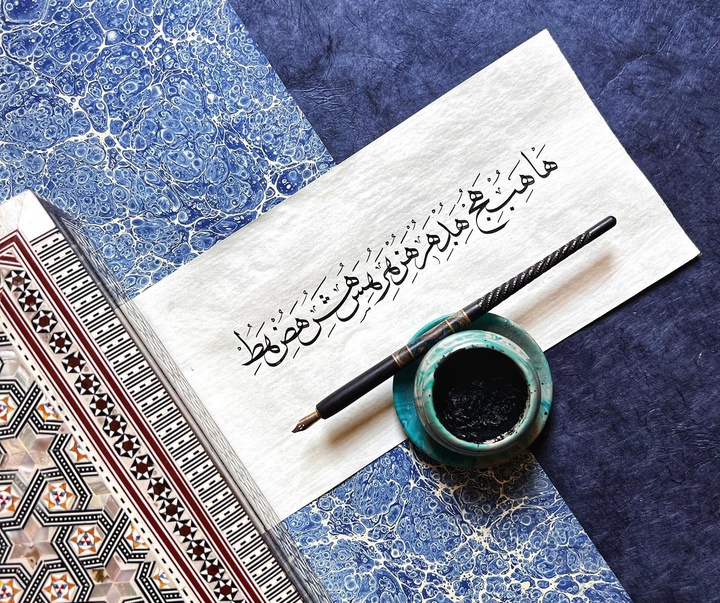 هَا هِبُ هَجُ هُدِ هَرُ هَزِ هَرُ هُسَ هُشِ هُضُ هَطِ